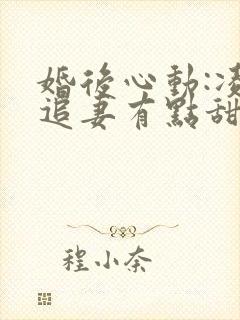 婚後心動:凌
追妻有點甜
程小奈